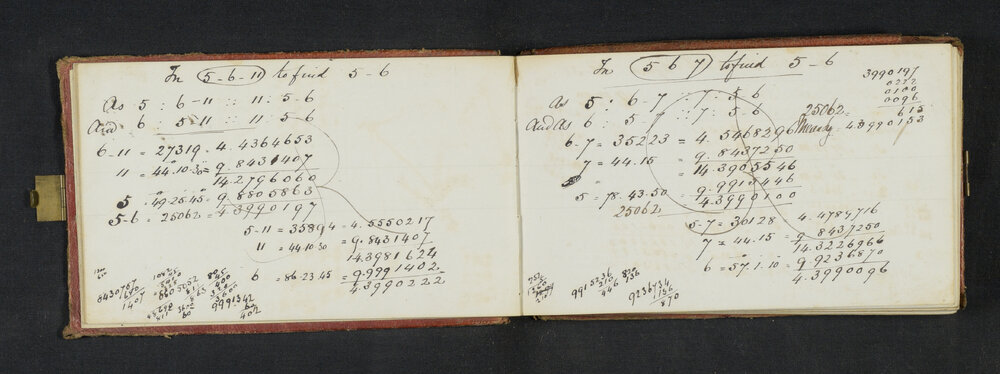 In 5-6-11 to find 5-6
As 5 : 6-11 :: 11 : 5-6
And 6 : 5-11 :: 11 : 5-6
6-11 = 27319 = 4.4364653
11 = 44.10.30 = 9.8431407
14.2796060
5 = 49.25.45 = 9.8805863
5-6 = 25062 = 4.3990197
5-11 = 35894 = 4.5550217
11 = 44.10.30 = 9.8431407
14.3981624
6 = 86.23.45 = 9.9991402
4.3990222
8430757
1407
9991342
402
In 5 6 7 to find 5-6
As 5 : 6-7 :: 7 : 5-6
And As 6 : 5-7 :: 7 : 5-6
6-7 = 35223 = 4.5468296
7 = 44.15 = 9.8437250
14.3905546
5 = 78.43.50 = 9.9915446
25062 4.3990100
5-7 = 30128 = 4.4789716
7 = 44.15 = 9.8437250
14.3226966
6 = 57.1.10 = 9.9236870
4.3990096
3990197
0222
0100
0096
615
25062 4.3990153
9915236
210
446
820
9236734
136
870